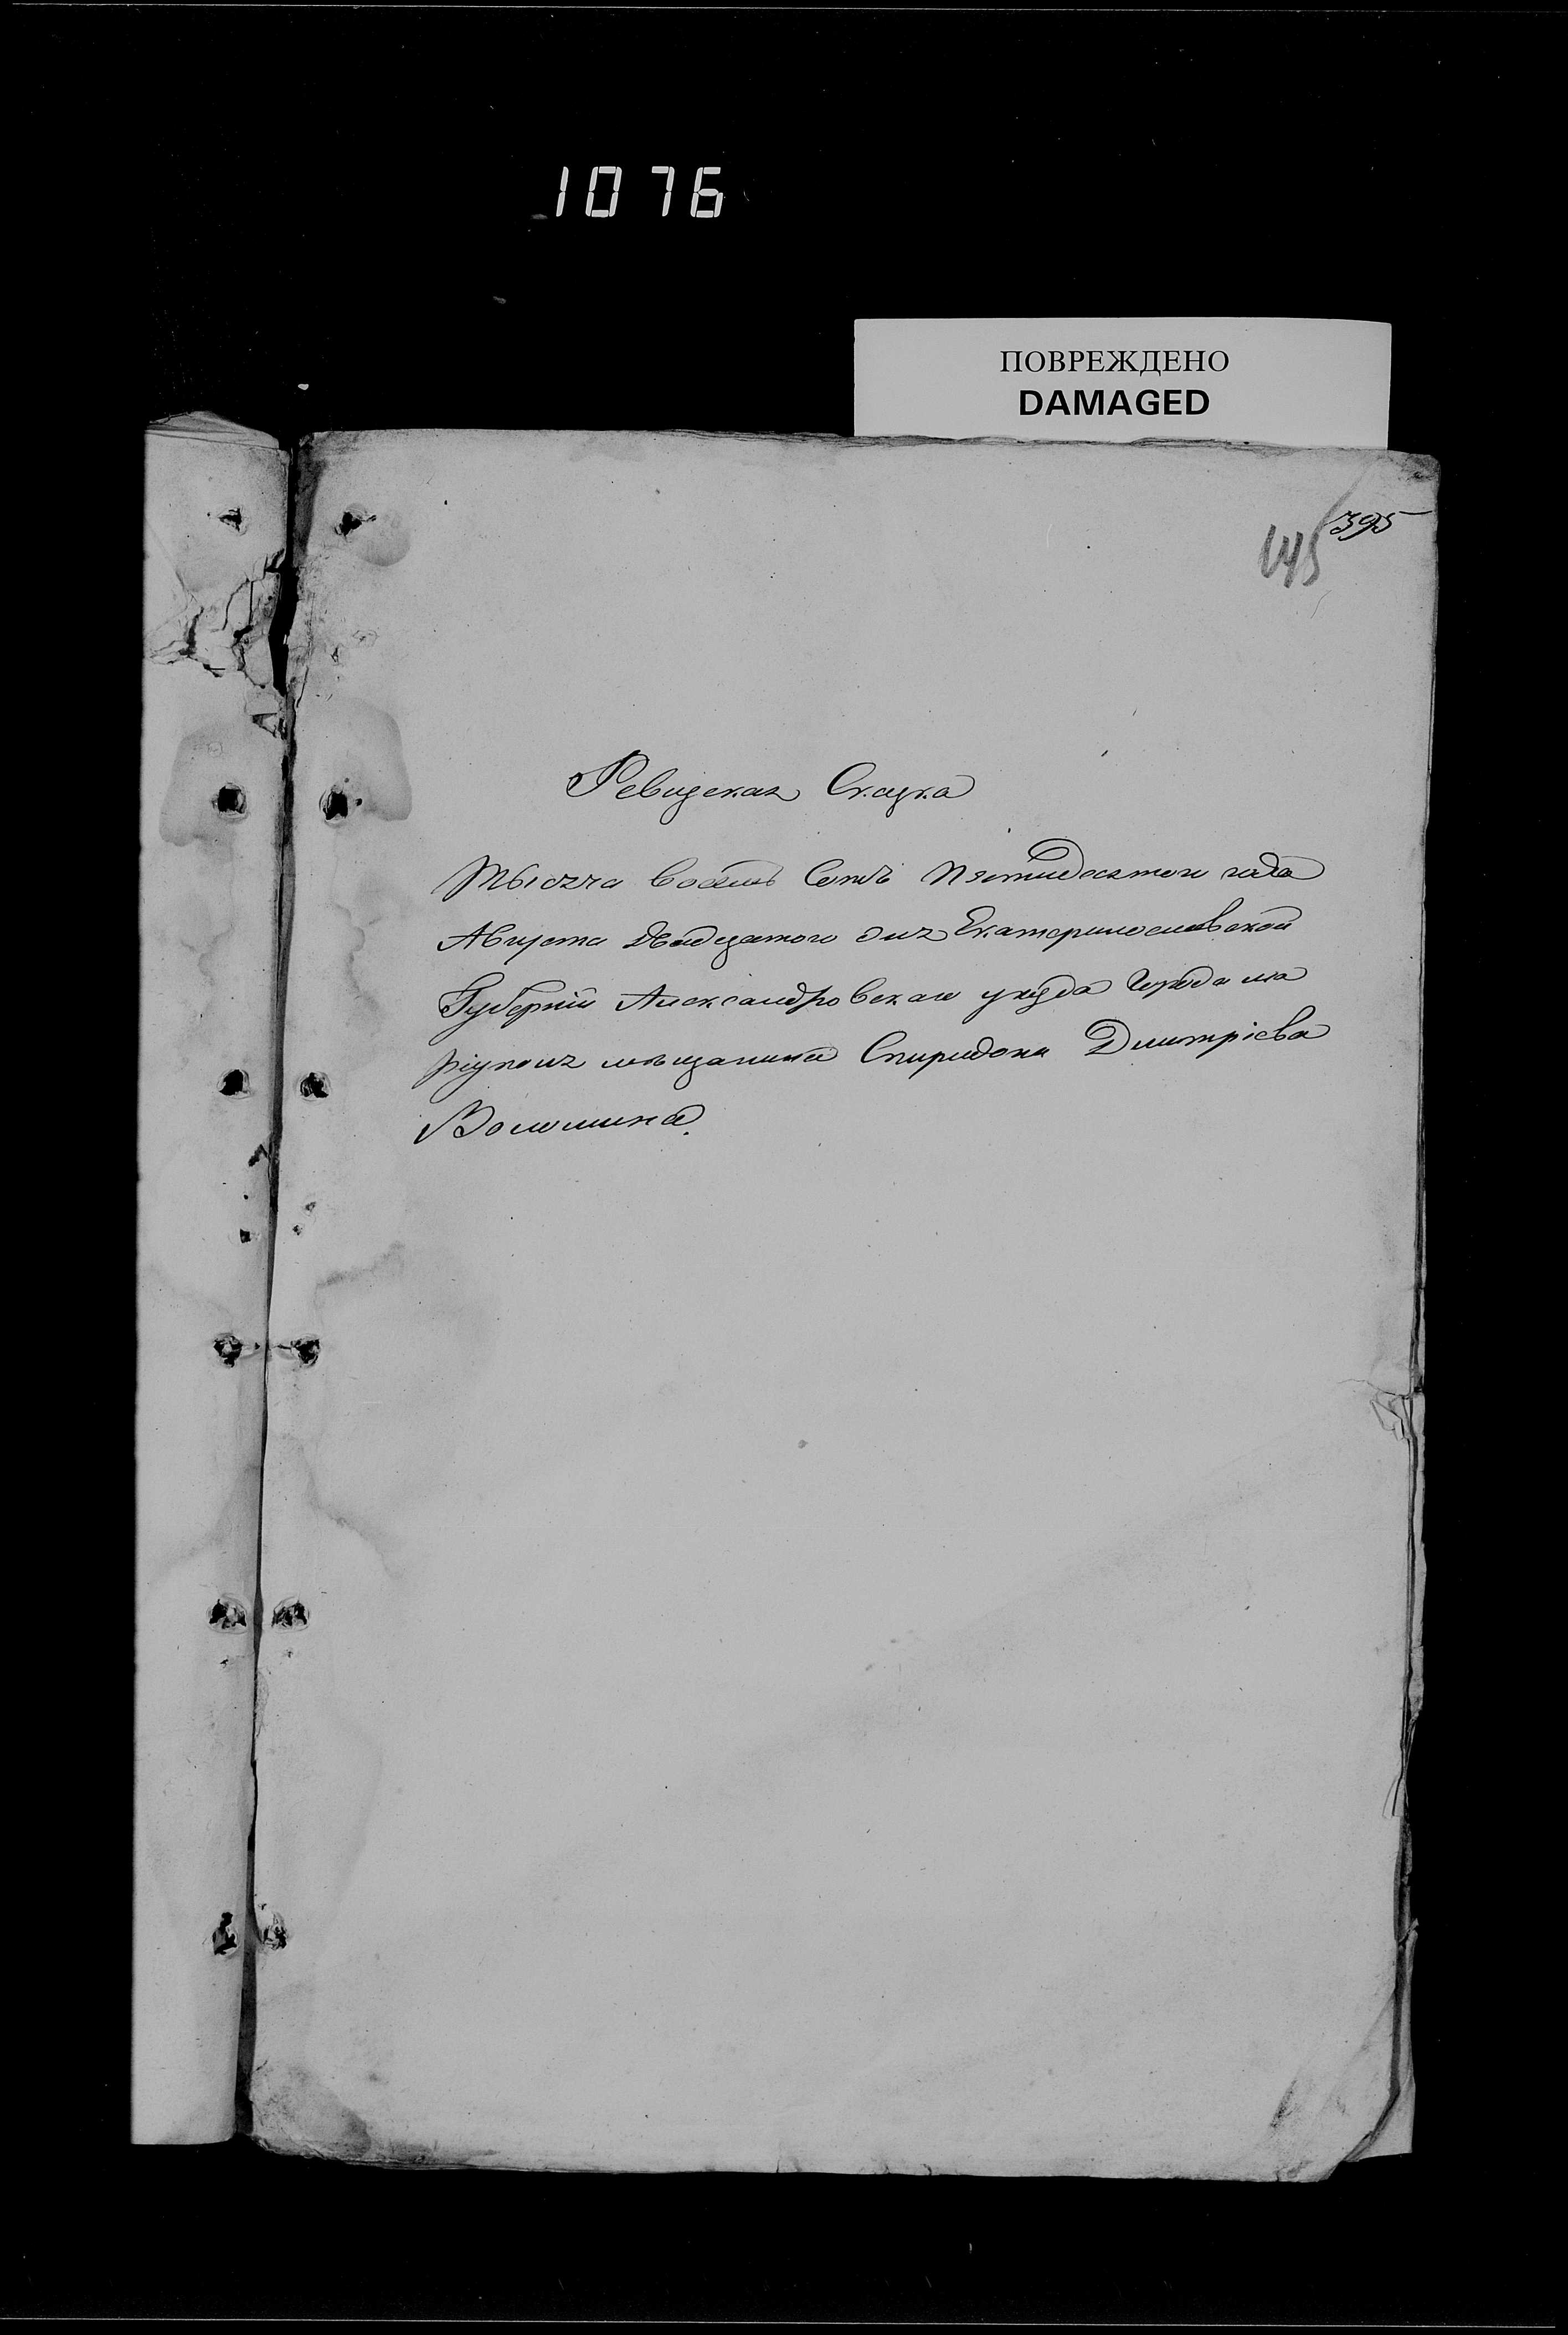 1076
ПОВРЕЖДЕНО
DAMAGED
395
145
Ревизская Сказка
Тысяча восемь сотъ Пятидесятого года
Августа Двадцятого дня Екатеринославской
Губерніи Александровскаго уезда Города Ма
ріуполя мѣщанина Спиридона Дмитріева
Волошина.